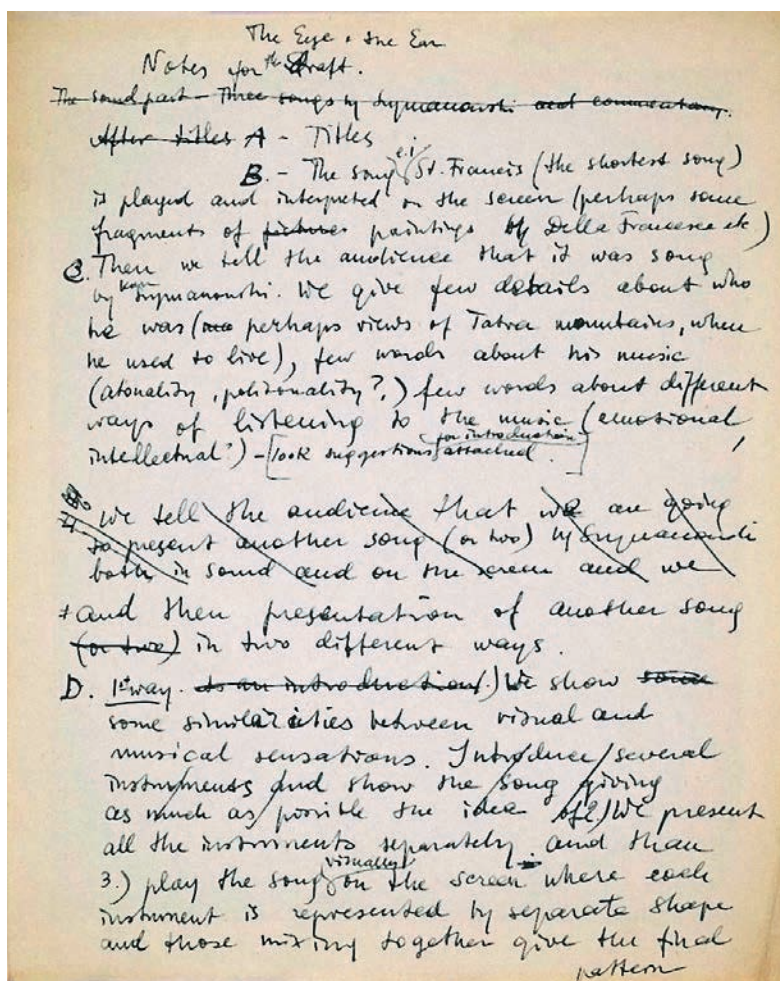 The Eye & the Ear
Notes for the Draft.
The sound part - Three songs by Szymanowski and commentary.
After titles A - Titles
B. - The song e.i St. Francis (the shortest song)
is played and interpreted on the screen (perhaps some
fragments of pictures paintings by Della Francesca etc)
C. Then we tell the audience that it was song
by Karol Szymanowski. We give few details about who
he was ( perhaps views of Tatra mountains, when
he used to live), few words about his music
(atonality, politonality?,) few words about different
ways of listening to the music (emotional,
intellectual?) - [look suggestions for introduction attached.]
We tell the audience that we are going
to present another song (or two) by Szymanowski
both in sound and on the screen and we
+ and then presentation of another song
(or two) in two different ways.
D. 1st way. As an introduction 1.) We show some
some similarieties between visual and
musical sensations. Introduce several
instruments and show the song giving
as much as possible the idea of 2.) We present
all the instruments separately and than
3.) play the song visually on the screen where each
instrument is represented by separate shape
and those mixing together give the final
pattern